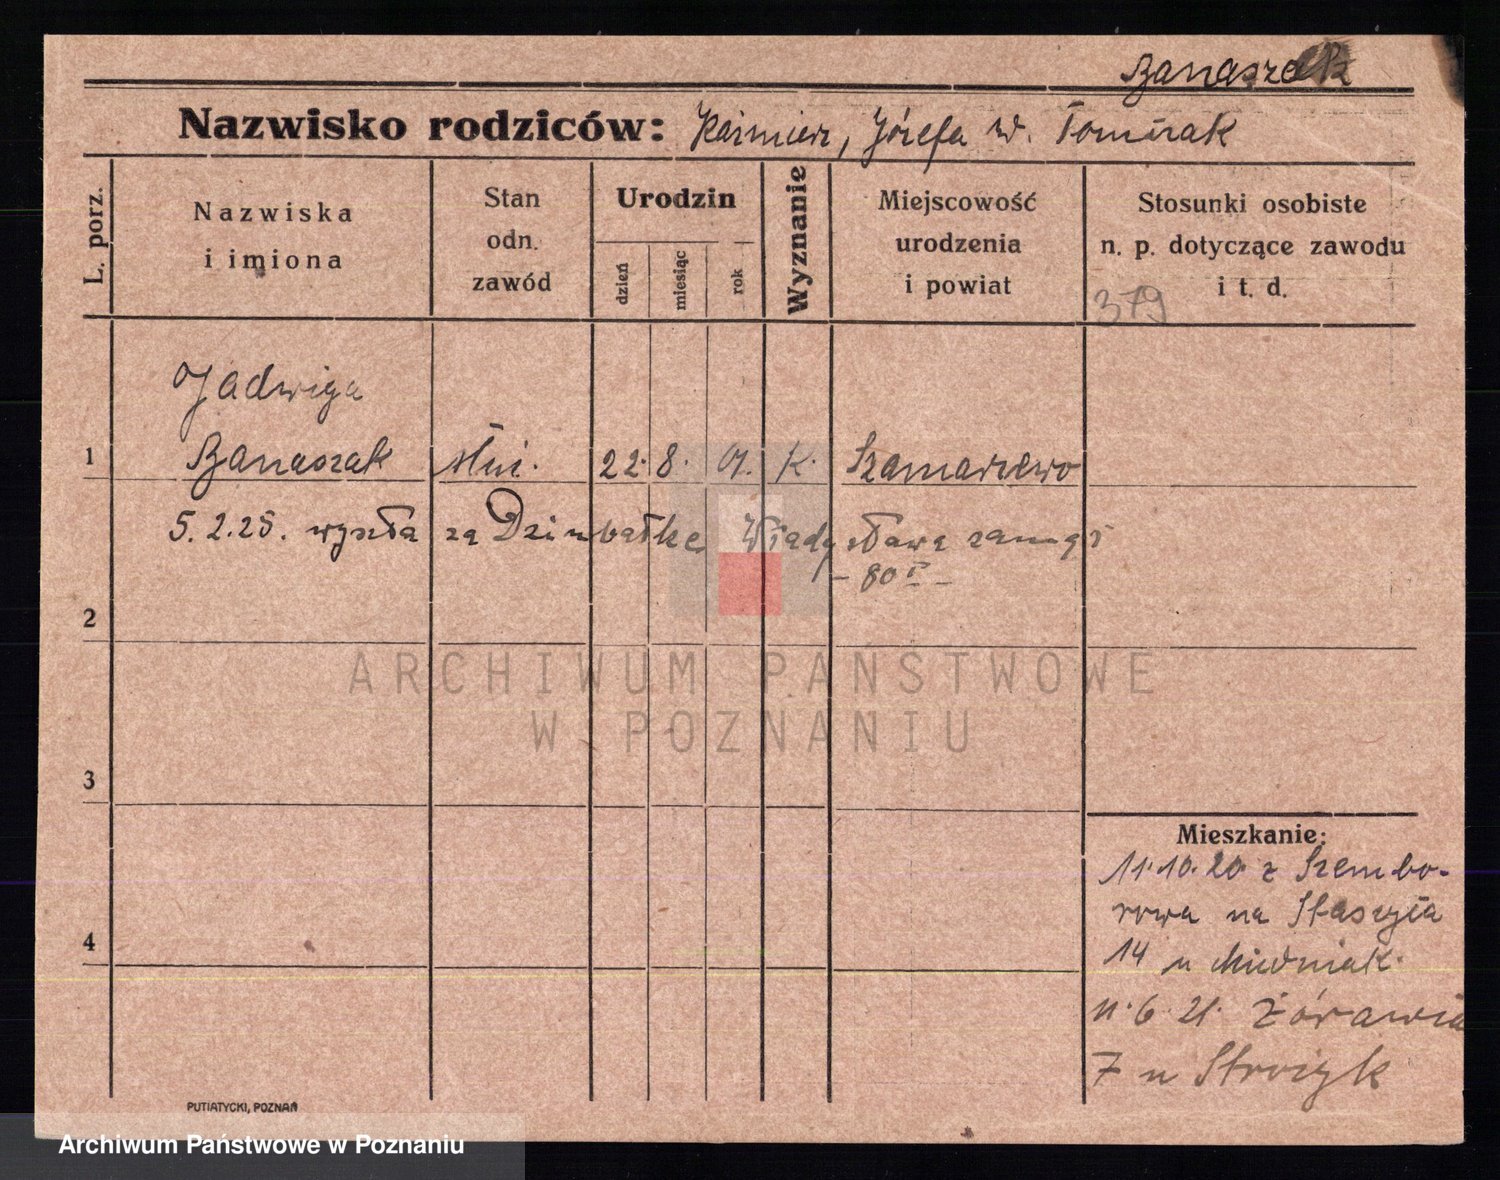 Banaszak
Nazwisko rodziców: Kaźmierz, Józefa ur. Tomczak
L. porz.
Nazwiska
i imiona
Stan
odn.
zawód
Urodzin
dzień
miesiąc
rok
Wyznanie
Miejscowość
urodzenia
i powiat
Stosunki osobiste
n. p. dotyczące zawodu
i t. d.
379
Jadwiga
1 Banaszak służ. 22. 8. 01. K. Szamarzewo
5.2.25. wyszła za Dziubałkę Władysława zamąż
- 80
2
ARCHIWUM PAŃSTWOWE
W POZNANIU
3
Mieszkanie:
11.10.20 z Szembo-
rowa na Staszyca
4
14 u
11.6.21. Żórawia
7 u Strożyk
PUTIATYCKI, POZNAŃ
Archiwum Państwowe w Poznaniu